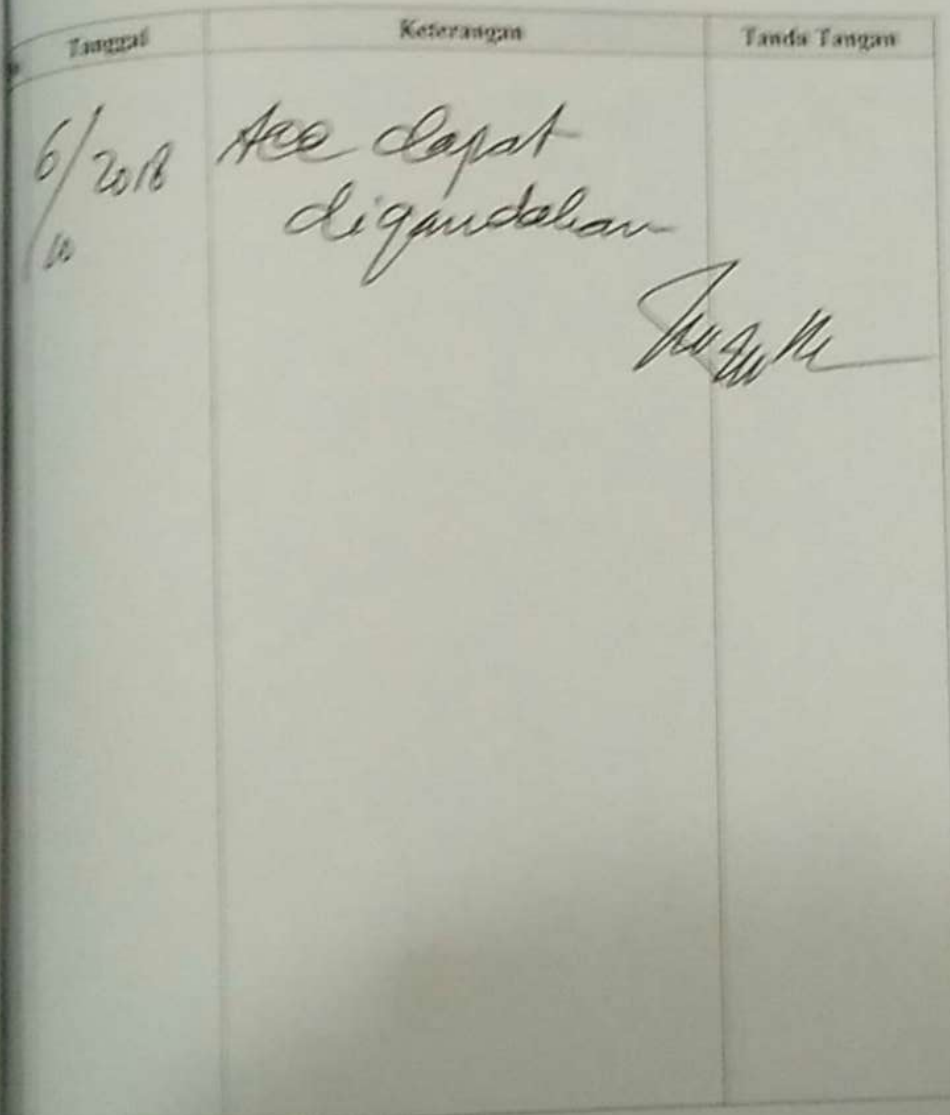 Tanggal Keterangan Tanda Tangan
6/ 2018 Acc dapat
digandakan